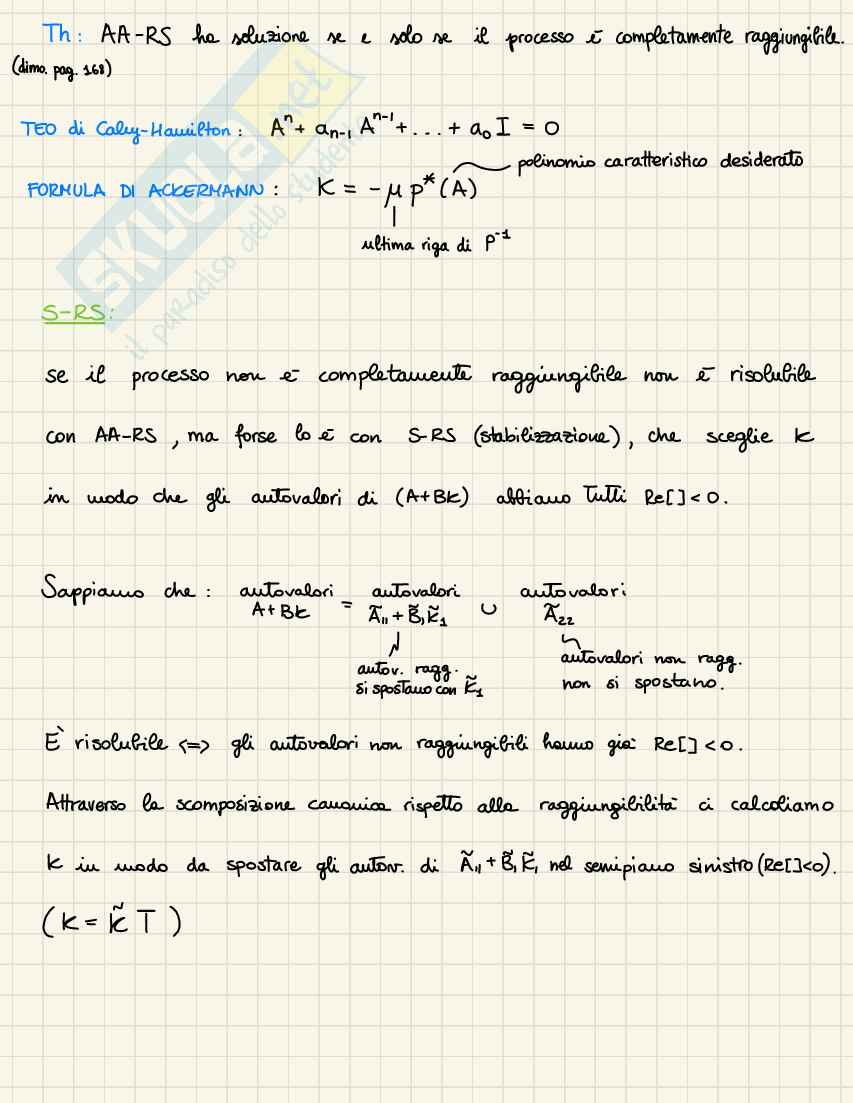 Th: AA-RS ha soluzione se e solo se il processo è completamente raggiungibile.
(dimo. pag. 168)
TEO di Caley-Hamilton: Aⁿ + aₙ₋₁ Aⁿ⁻¹ + ... + a₀ I = 0
polinomio caratteristico desiderato
FORMULA DI ACKERMANN: K = -μ p*(A)
ultima riga di P⁻¹
SKUOLA.net
il paradiso dello studente
S-RS:
se il processo non è completamente raggiungibile non è risolubile
con AA-RS, ma forse lo è con S-RS (stabilizzazione), che sceglie K
in modo che gli autovalori di (A+BK) abbiano tutti Re[]<0.
Sappiamo che: autovalori = autovalori ∪ autovalori
A+BK Ã₁₁ + B̃₁K̃₁ Ã₂₂
autov. ragg. autovalori non ragg.
si spostano con K̃₁ non si spostano.
È risolubile <=> gli autovalori non raggiungibili hanno già Re[]<0.
Attraverso la scomposizione canonica rispetto alla raggiungibilità ci calcoliamo
K in modo da spostare gli autov. di Ã₁₁ + B̃₁K̃₁ nel semipiano sinistro (Re[]<0).
(K = K̃ T)